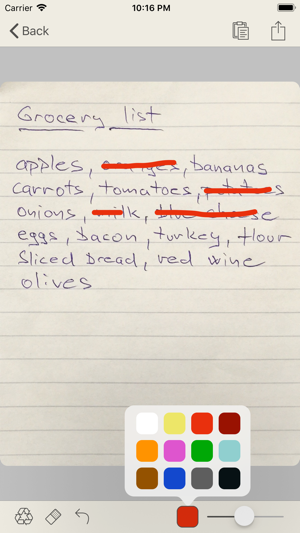 Carrier 10:16 PM
Back
Grocery list
apples, oranges, bananas
carrots, tomatoes, potatoes
onions, milk, blue cheese
eggs, bacon, turkey, flour
sliced bread, red wine
olives